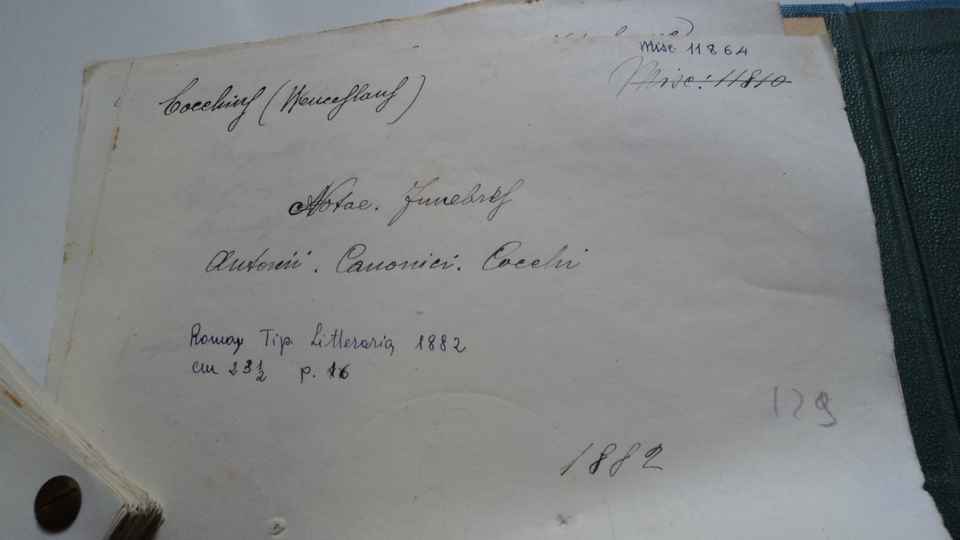 Misc 11864
Misc: 11810
Cocchius (Wenceslaus)
Notae. Funebres
Antonii. Canonici. Cocchi
Roma, Tip Litteraria 1882
cm 23 1/2 p. 16
129
1882